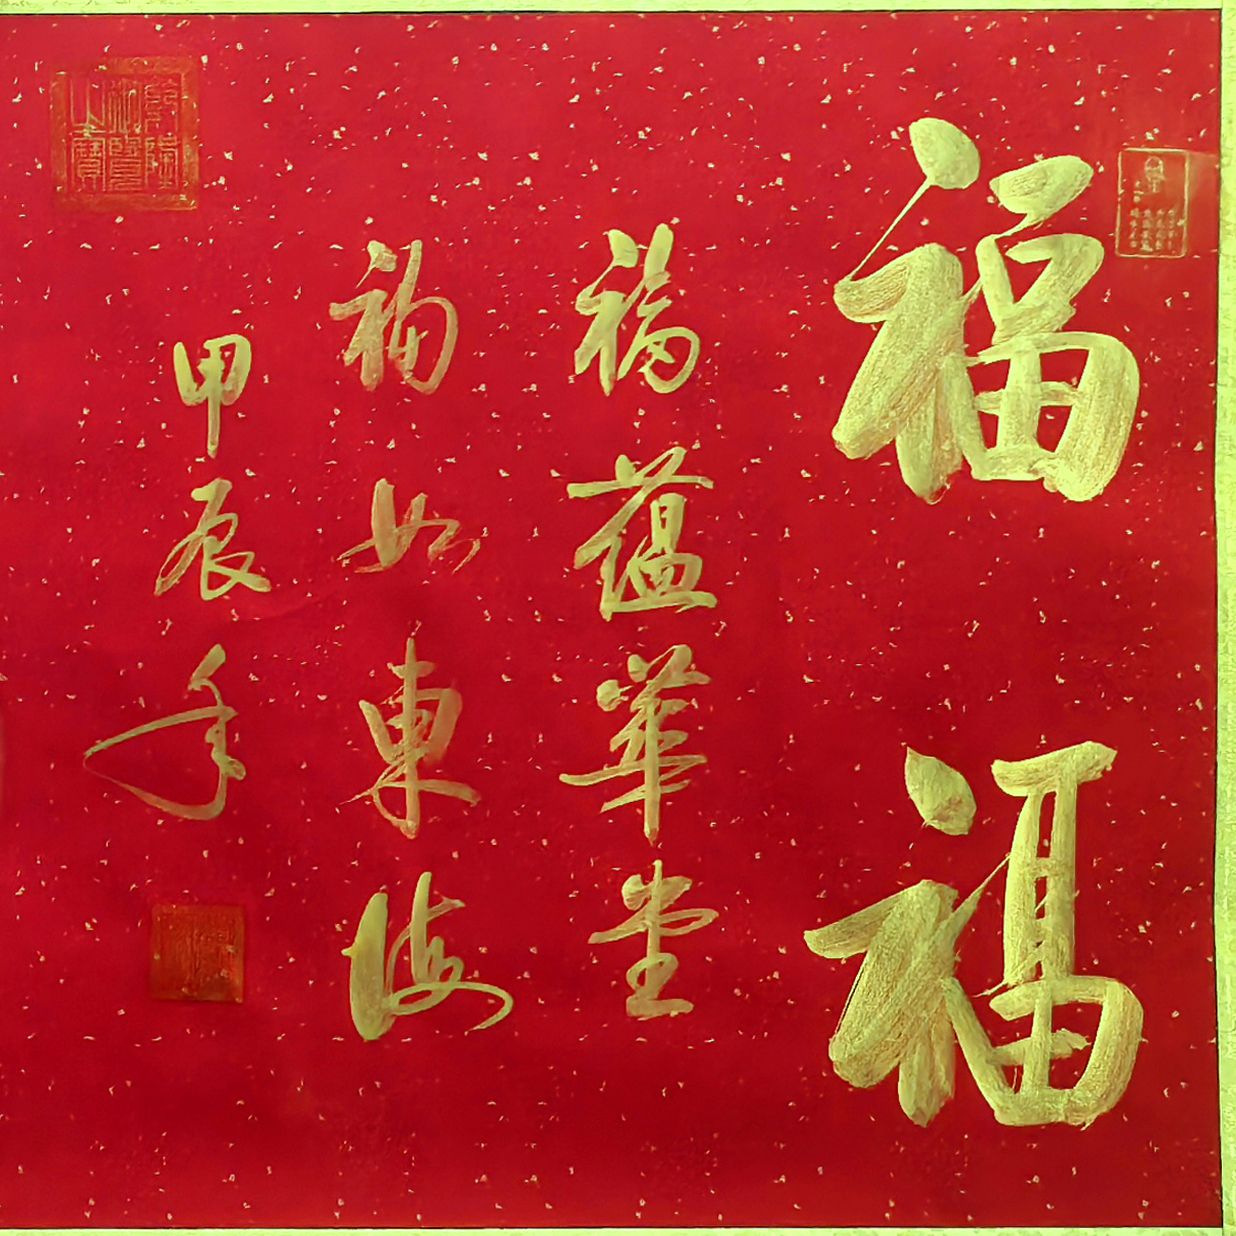 福福
福蕴華堂
福如東海
甲辰年